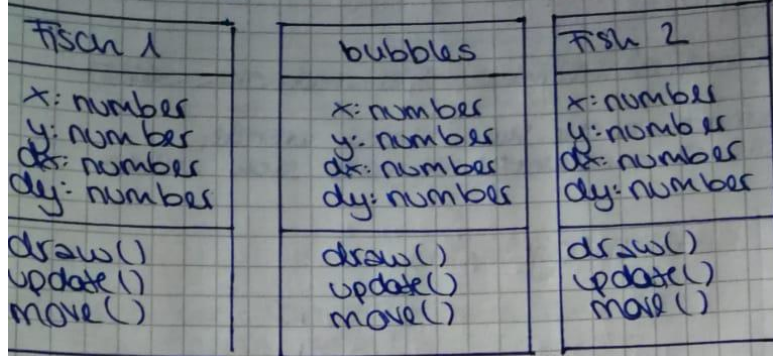 Fisch 1
x: number
y: number
dx: number
dy: number
draw()
update()
move()
bubbles
x: number
y: number
dx: number
dy: number
draw()
update()
move()
Fish 2
x: number
y: number
dx: number
dy: number
draw()
update()
move()